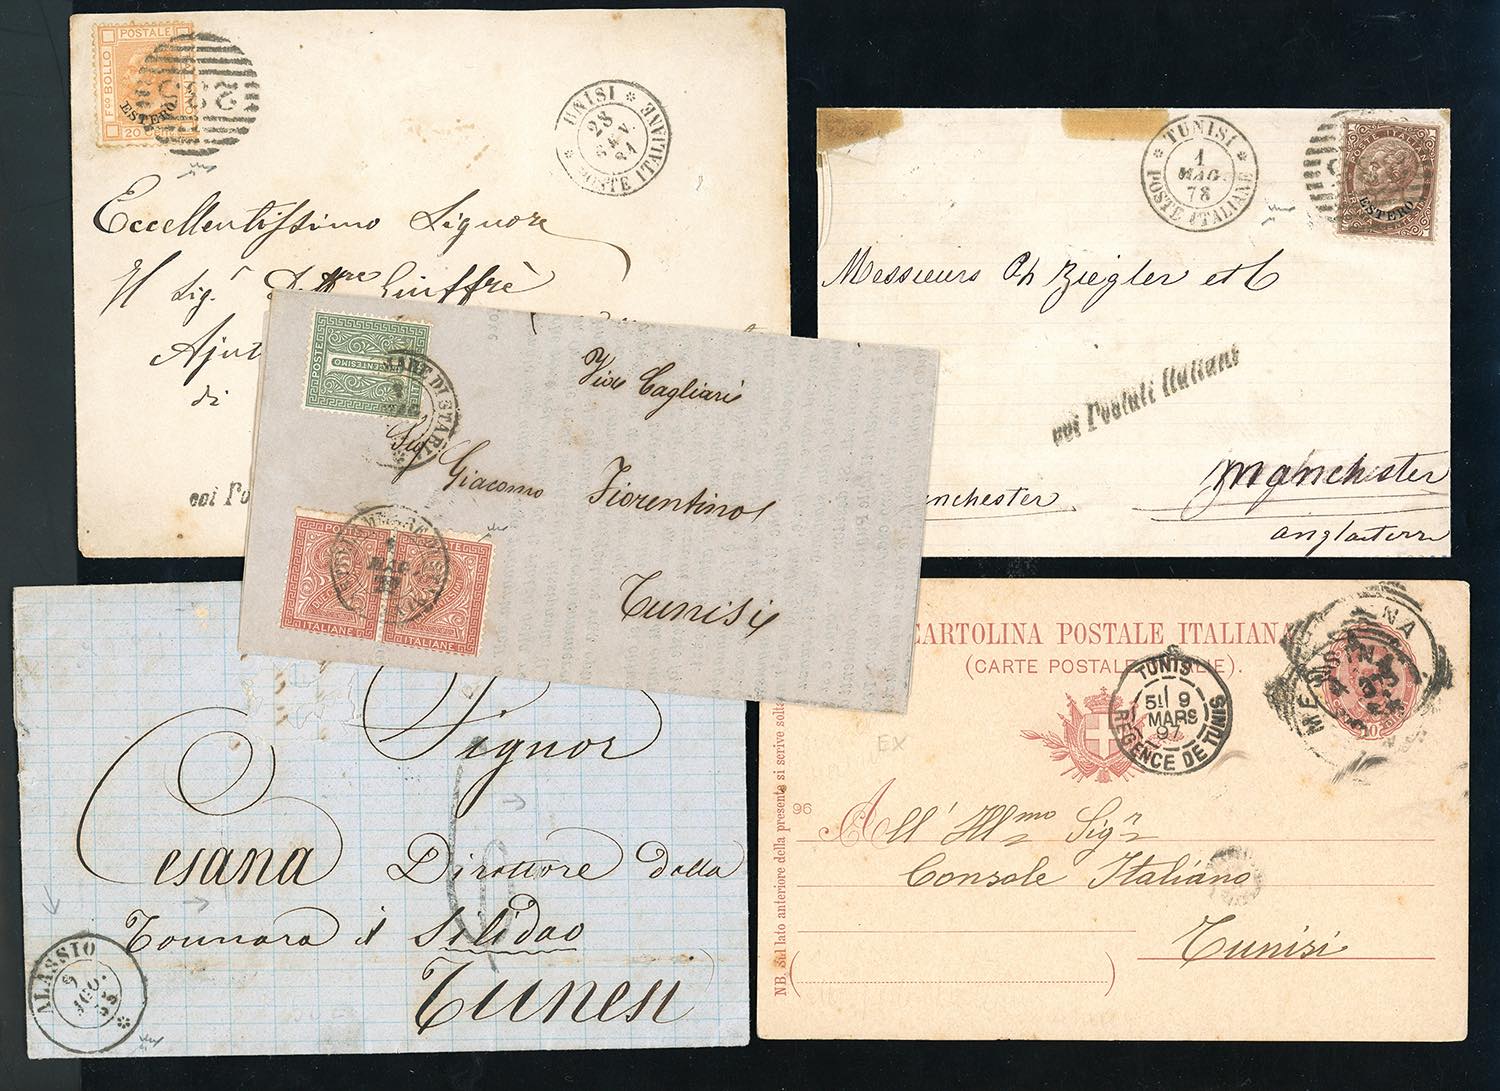 POSTALE
Fco BOLLO
20
ESTERO
UNISI
28
81
POSTE ITALIANE
Eccellentissimo Signore
Il Sig.r Giuffrè
Ajut
di
coi Po
POSTE ITALIANE
ESTERO
TUNISI
1
MAG
78
POSTE ITALIANE
Messieurs Ch Ziegler et C
coi Postali Italiani
Manchester
nchester
anglaterre
POSTE
CENTESIMO
MARE DI STABIA
Via Cagliari
Sig
Giacomo Fiorentino
Tunisi
MAG
ITALIANE
ITALIANE
Signor
Cesana Direttore della
Tonnara di Silidao
Tunesi
ALASSIO
9
AGO.
65
CARTOLINA POSTALE ITALIANA
(CARTE POSTALE D'ITALIE).
TUNIS
5 9
MARS
97
REGENCE DE TUNIS
MESSINA
10
EX
96
NB. Sul lato anteriore della presente si scrive solta
All' Illmo Sigr
Console Italiano
Tunisi